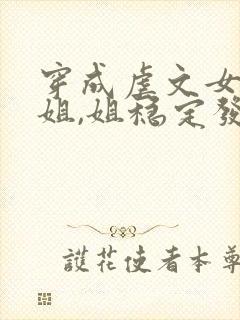 穿成虐文女
姐,姐穩定發
護花使者本尊